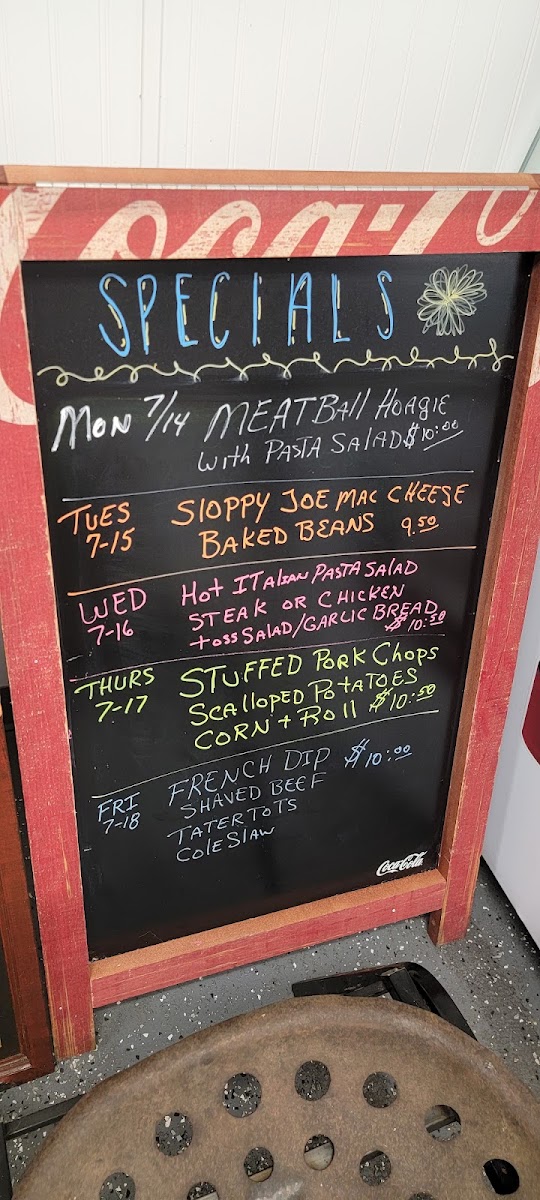 Coca-Co
SPECIALS
MON 7/14 MEATBAll HOAGIE
with PASTA SALAD $10:00
TUES SlOPPY JOE MAC CHEESE
7-15 BAKED BEANS 9.50
WED Hot ITAlian PASTA SALAD
7-16 STEAK OR CHICKEN
tossSALAD/GARLIC BREAD
$10:50
THURS STUFFED PORK Chops
7-17 SCAllOPED POtATOES
CORN + Roll $10:50
FRI FRENCH DIP $10:00
7-18 SHAVED BEEF
TATERTOTS
ColESlaw
Coca-Cola